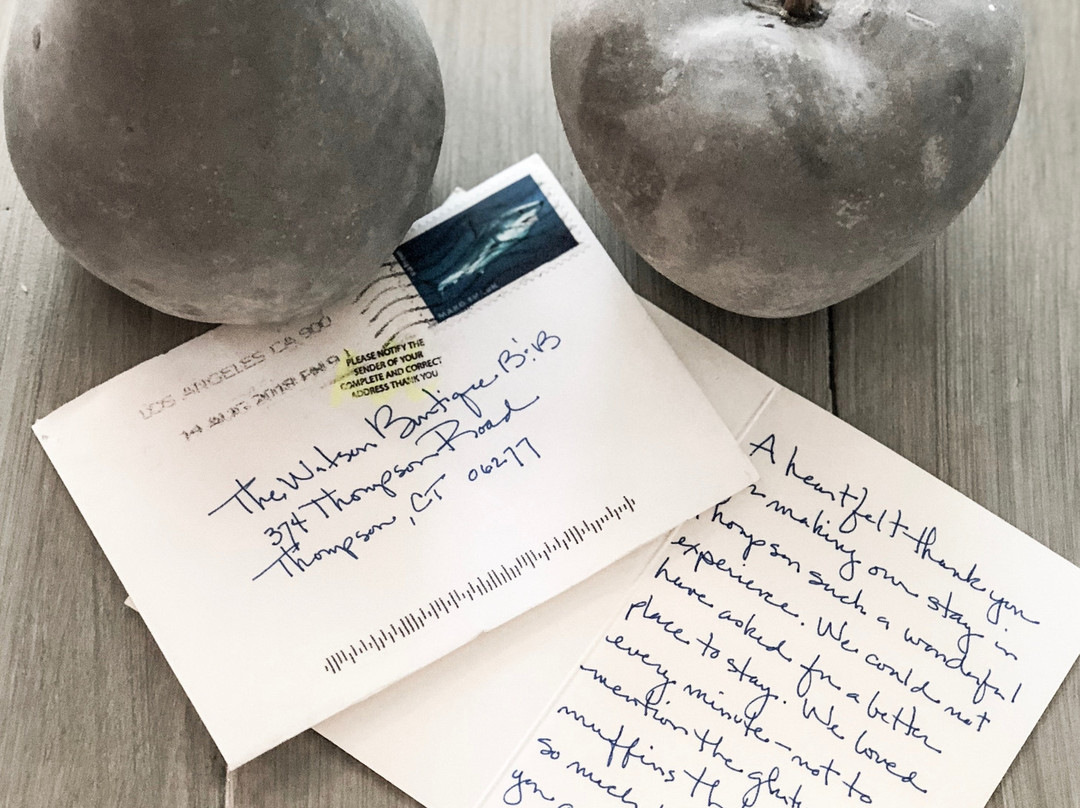 LOS ANGELES CA 900
14 AUG 2018 PM 9 L
PLEASE NOTIFY THE
SENDER OF YOUR
COMPLETE AND CORRECT
ADDRESS THANK YOU
The Watson Boutique B&B
374 Thompson Road
Thompson, CT 06277
A heartfelt thank you
making our stay in
Thompson such a wonderful
experience. We could not
have asked for a better
place to stay. We loved
every minute-not to
mention the
muffins
so much
you